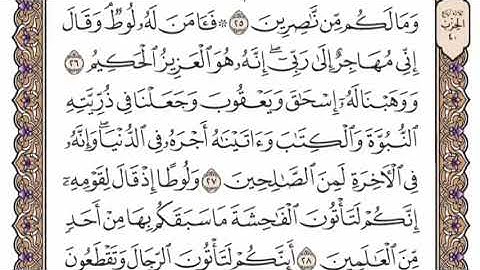 وَمَا لَكُم مِّن نَّٰصِرِينَ ٢٥ ۞ فَـَٔامَنَ لَهُۥ لُوطٌ وَقَالَ
إِنِّى مُهَاجِرٌ إِلَىٰ رَبِّىٓ إِنَّهُۥ هُوَ ٱلْعَزِيزُ ٱلْحَكِيمُ ٢٦
وَوَهَبْنَا لَهُۥٓ إِسْحَٰقَ وَيَعْقُوبَ وَجَعَلْنَا فِى ذُرِّيَّتِهِ
ٱلنُّبُوَّةَ وَٱلْكِتَٰبَ وَءَاتَيْنَٰهُ أَجْرَهُۥ فِى ٱلدُّنْيَا وَإِنَّهُۥ
فِى ٱلْءَاخِرَةِ لَمِنَ ٱلصَّٰلِحِينَ ٢٧ وَلُوطًا إِذْ قَالَ لِقَوْمِهِۦٓ
إِنَّكُمْ لَتَأْتُونَ ٱلْفَٰحِشَةَ مَا سَبَقَكُم بِهَا مِنْ أَحَدٍ
مِّنَ ٱلْعَٰلَمِينَ ٢٨ أَئِنَّكُمْ لَتَأْتُونَ ٱلرِّجَالَ وَتَقْطَعُونَ
الحزب
٤٠